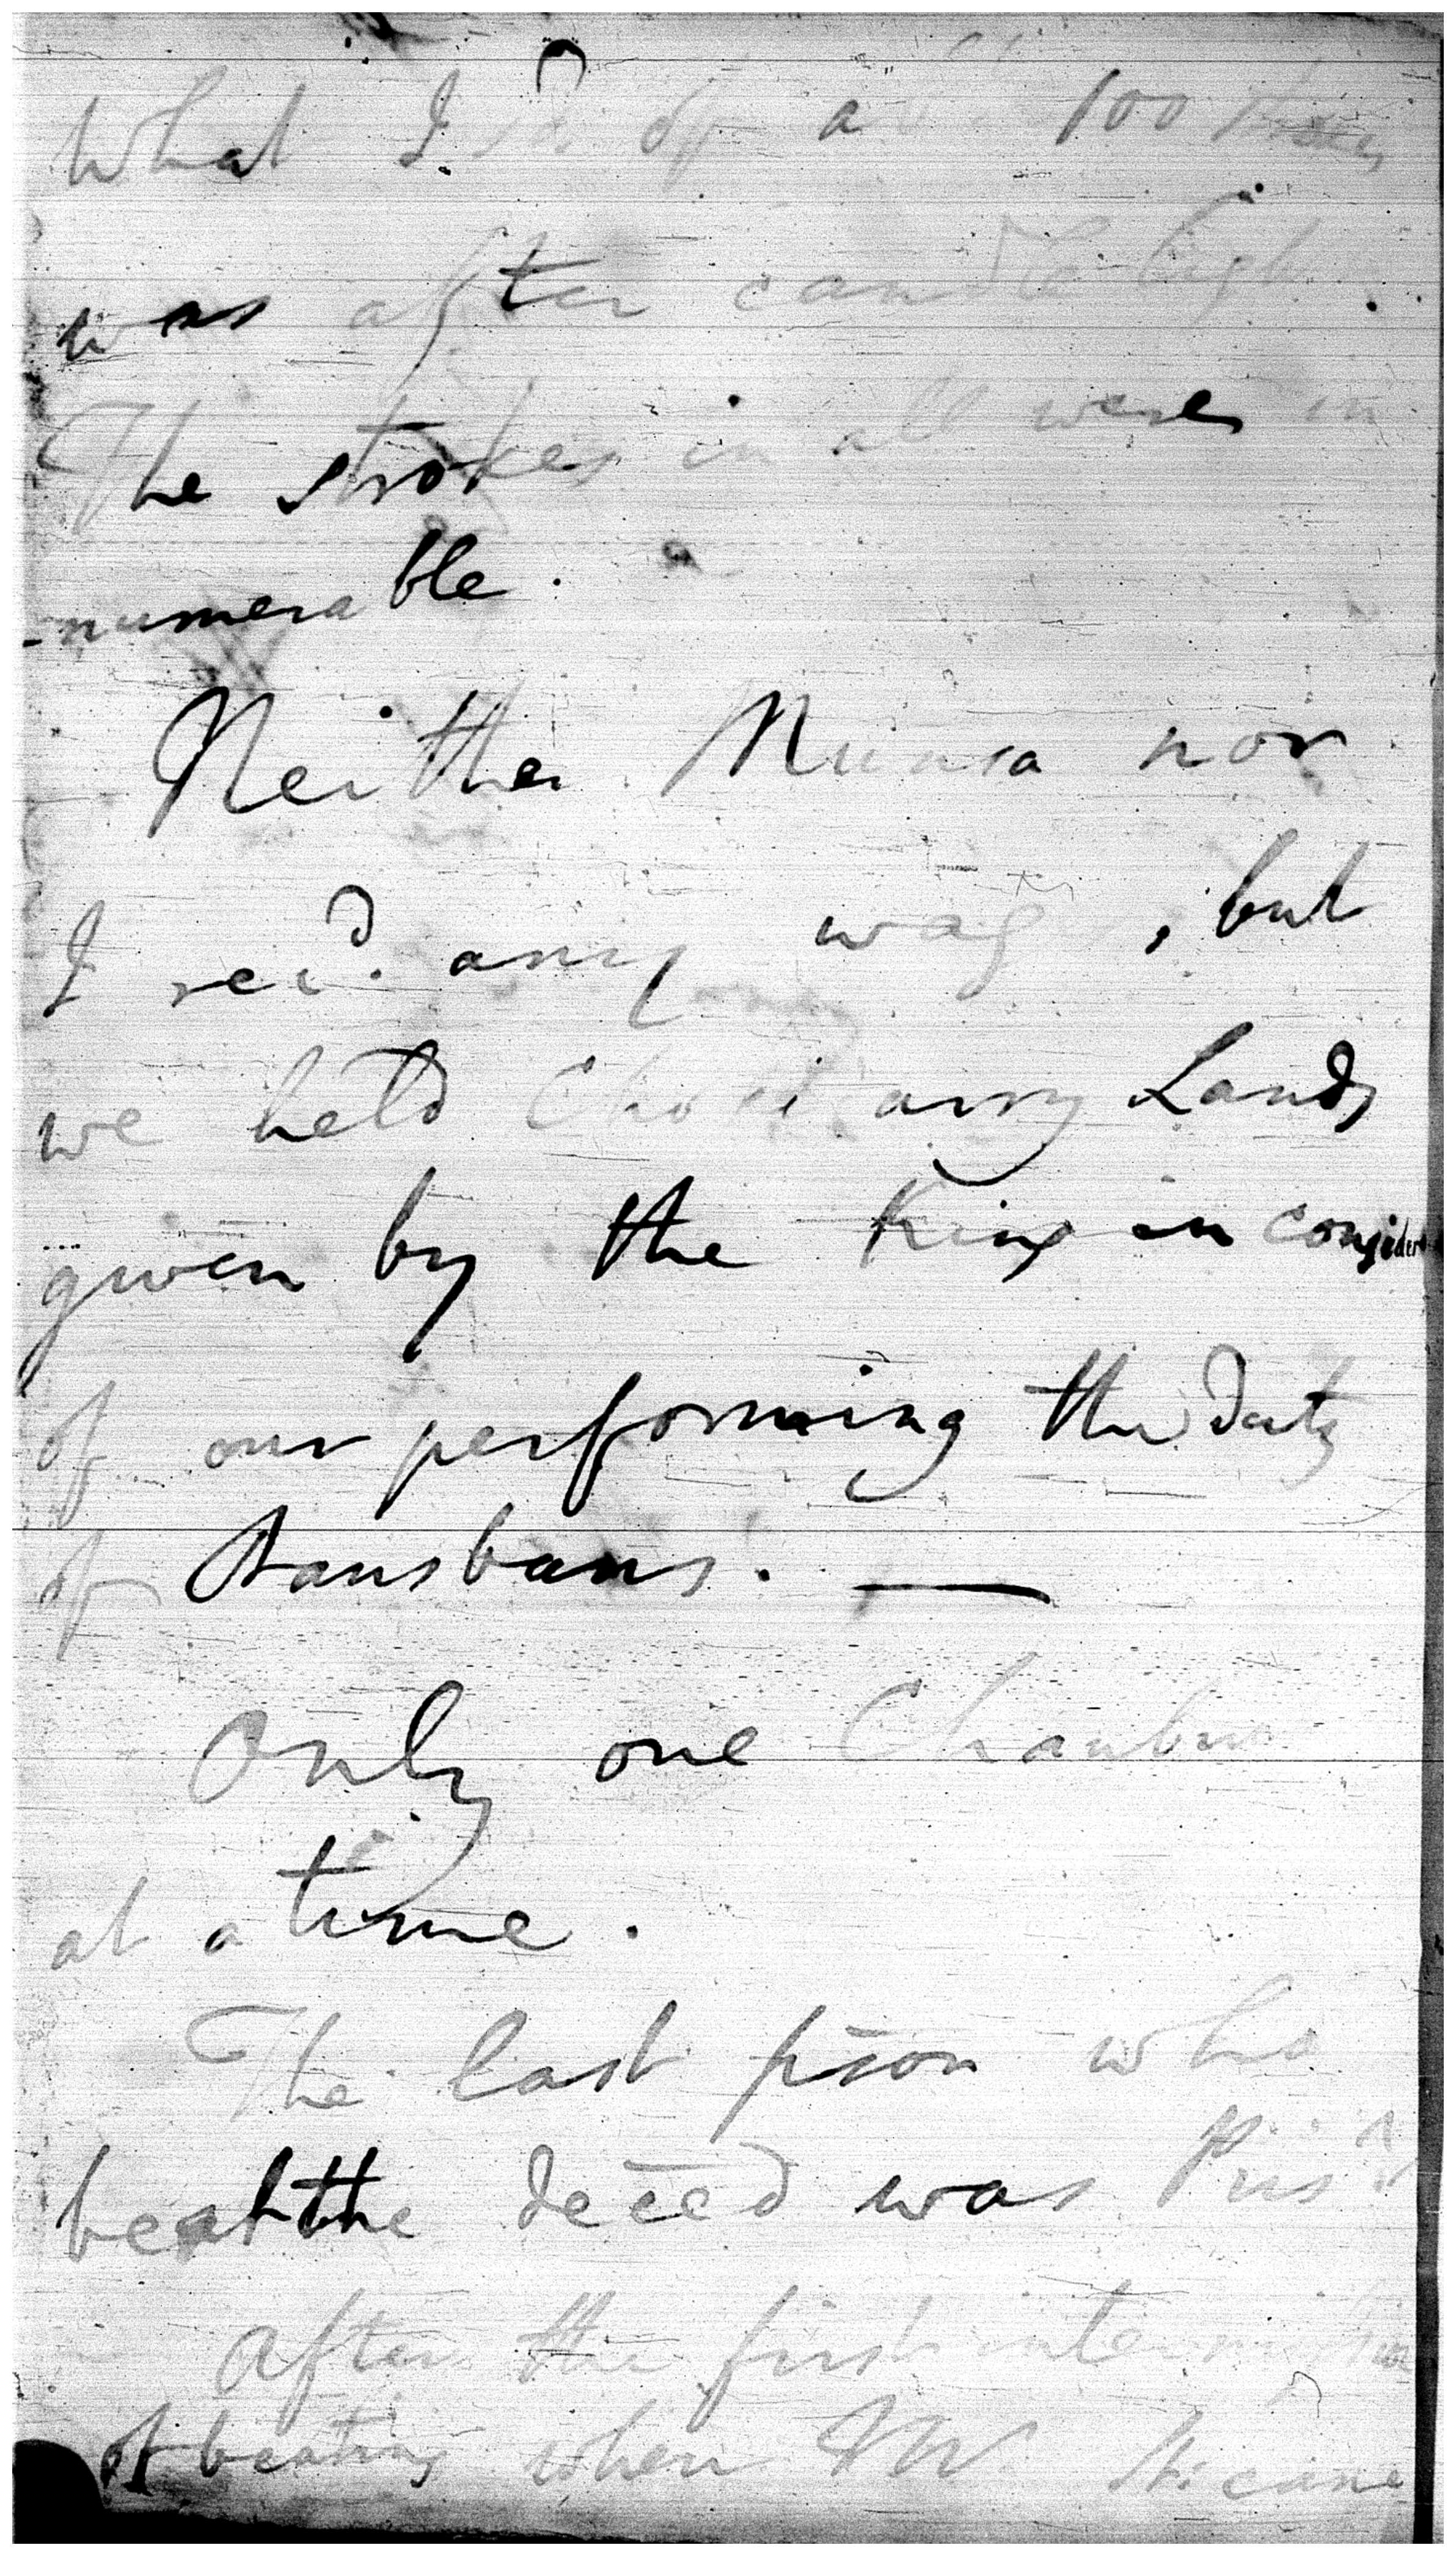 What I sd. of a 100 strokes
was after candle light.
The strokes in all were in
-numerable.
Neither Munsa nor
I recd. any wages, but
we held Chokeeamy Lands
given by the King in consider
of our performing the duty
of
Only one Chaubuc
at a time.
The last pson who
beat the deced was Prisr
After the first intermission
of beating when Mr. St. came